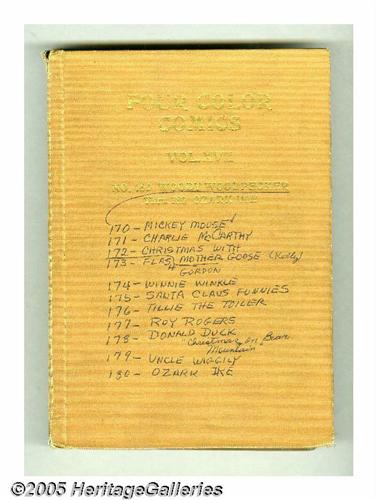 FOUR COLOR
COMICS
VOL. XVII
NO. 169 WOODY WOODPECKER
THRU 180 OZARK IKE
170 - MICKEY MOUSE
171 - CHARLIE McCARTHY
172 - CHRISTMAS WITH
MOTHER GOOSE (Kelly)
173 - FLASH
GORDON
174 - WINNIE WINKLE
175 - SANTA CLAUS FUNNIES
176 - TILLIE THE TOILER
177 - ROY ROGERS
178 - DONALD DUCK
"Christmas on Bear
Mountain"
179 - UNCLE WIGGILY
180 - OZARK IKE
©2005 HeritageGalleries